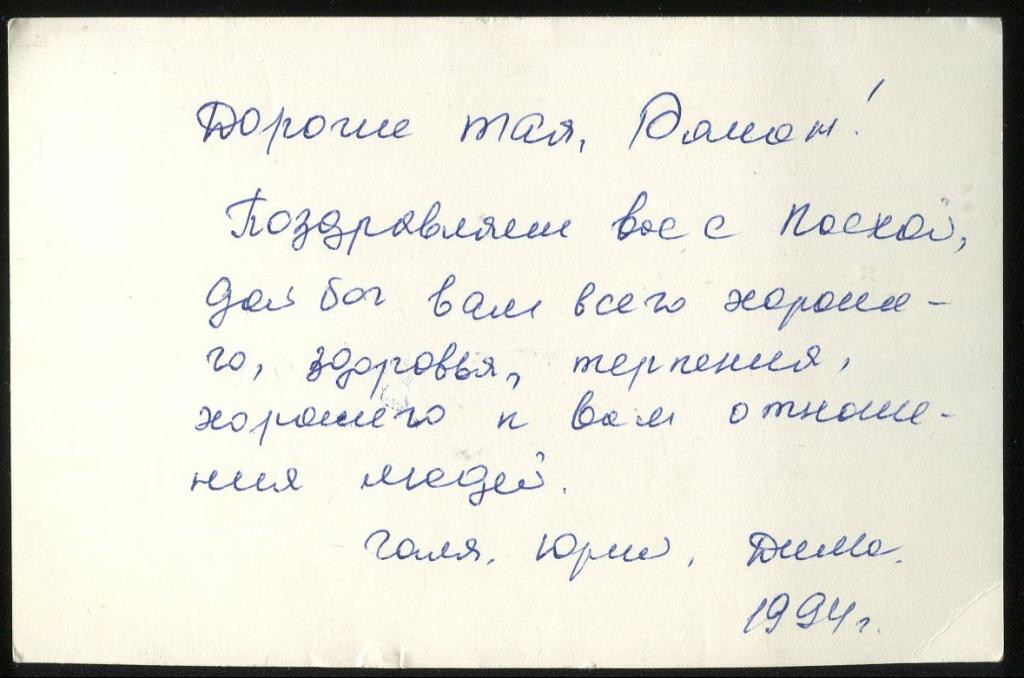 Дорогие Тая, Роман!
Поздравляем вас с Пасхой,
дай бог вам всего хороше-
го, здоровья, терпения,
хорошего к вам отноше-
ния людей.
Галя, Юрий, Дима.
1994г.